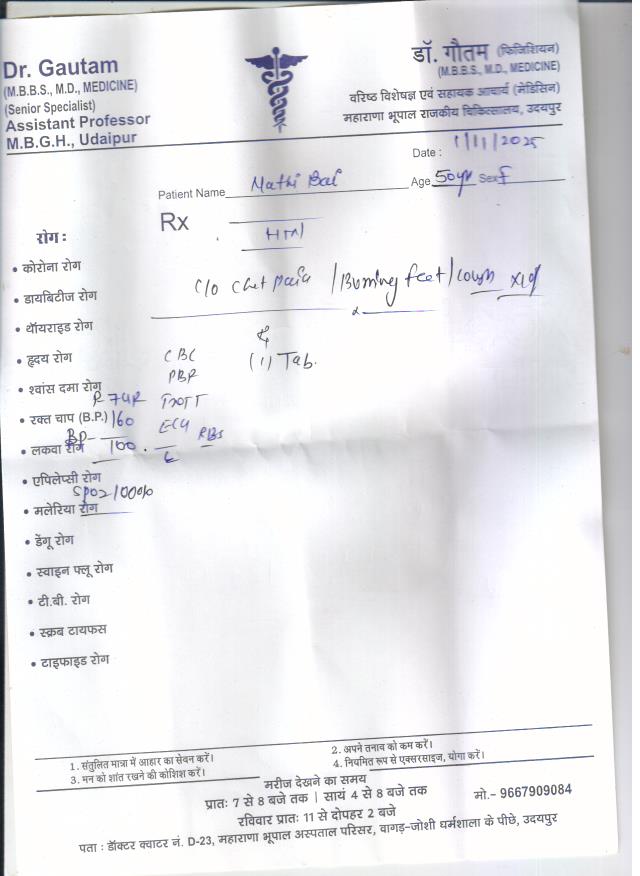 Dr. Gautam
(M.B.B.S., M.D., MEDICINE)
(Senior Specialist)
Assistant Professor
M.B.G.H., Udaipur
डॉ. गौतम (फिजिशियन)
(M.B.B.S., M.D., MEDICINE)
वरिष्ठ विशेषज्ञ एवं सहायक आचार्य (मेडिसिन)
महाराणा भूपाल राजकीय चिकित्सालय, उदयपुर
Date : 1/11/2025
Patient Name Mathi Bai Age 50yr Sex f
Rx
HTN
रोग :
C/o Chet pain / Burning feet / cough
• कोरोना रोग
• डायबिटीज रोग
• थॉयराइड रोग
• हृदय रोग
CBC
(1) Tab.
PBF
• श्वांस दमा रोग
P 74R
• रक्त चाप (B.P.) 160
ECG
RBS
• लकवा रोग
BP- 100
• एपिलेप्सी रोग
SPO2 100%
• मलेरिया रोग
• डेंगू रोग
• स्वाइन फ्लू रोग
• टी.बी. रोग
• स्क्रब टायफस
• टाइफाइड रोग
1. संतुलित मात्रा में आहार का सेवन करें।
2. अपने तनाव को कम करें।
3. मन को शांत रखने की कोशिश करें।
4. नियमित रूप से एक्सरसाइज, योगा करें।
मरीज देखने का समय
प्रातः 7 से 8 बजे तक | सायं 4 से 8 बजे तक
मो.- 9667909084
रविवार प्रातः 11 से दोपहर 2 बजे
पता : डॉक्टर क्वाटर नं. D-23, महाराणा भूपाल अस्पताल परिसर, वागड़-जोशी धर्मशाला के पीछे, उदयपुर